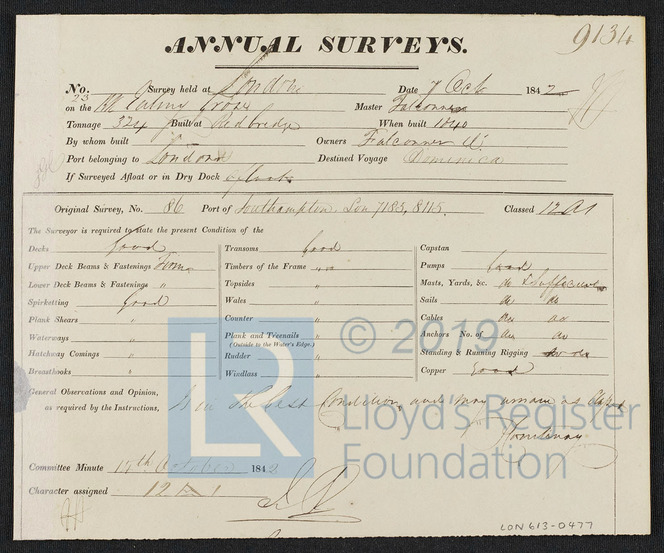 9134
ANNUAL SURVEYS.
No. 23 Survey held at London Date 7 Oct 1842
on the Bk Calms Cross Master Falconner
Tonnage 324 Built at Redbridge When built 1840
By whom built Owners Falconner
Port belonging to London Destined Voyage Dominica
If Surveyed Afloat or in Dry Dock afloat
Original Survey, No. 86 Port of Southampton. Lon 7183, 8115. Classed 12 A1
The Surveyor is required to state the present Condition of the
Decks Good Transoms Good Capstan
Upper Deck Beams & Fastenings Firm Timbers of the Frame Pumps Good
Lower Deck Beams & Fastenings " Topsides " Masts, Yards, &c. & Sufficient
Spirketting Good Wales " Sails do do
Plank Shears " Counter " Cables do do
Waterways " Plank and Treenails " Anchors No. of do do
(Outside to the Water's Edge)
Hatchway Comings " Rudder " Standing & Running Rigging
Breasthooks " Windlass " Copper Good
General Observations and Opinion, Is in the best Condition and may remain as Classed
as required by the Instructions,
Committee Minute 14th October 1842
Character assigned 12 A 1
LR © 2019
Lloyd's Register
Foundation
LON 613-0477